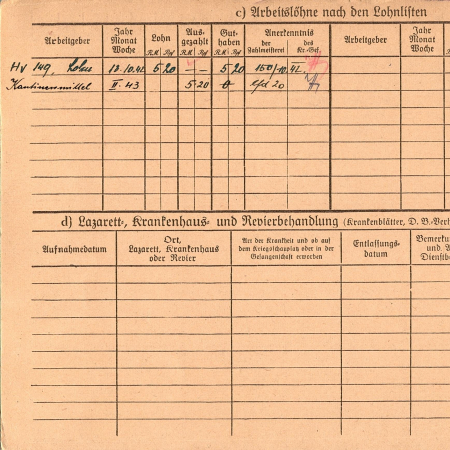 c) Arbeitslöhne nach den Lohnlisten
Arbeitgeber Jahr Monat Woche Lohn R.M. Pf Ausgezahlt R.M. Pf Guthaben R.M. Pf Anerkenntnis der Zahlmeisterei des Kr.-Gef. Arbeitgeber Jahr Monat Woche
Hv 149, 13.10.42 5 20 — — 5 20 150/10.42.
Kantinenmittel II. 43 5 20 0 lfd 20
d) Lazarett-, Krankenhaus- und Revierbehandlung (Krankenblätter, D. B.-Verf
Aufnahmedatum Ort, Lazarett, Krankenhaus oder Revier Art der Krankheit und ob auf dem Kriegsschauplatz oder in der Gefangenschaft erworben Entlassungs-datum Bemerku und A Dienstb